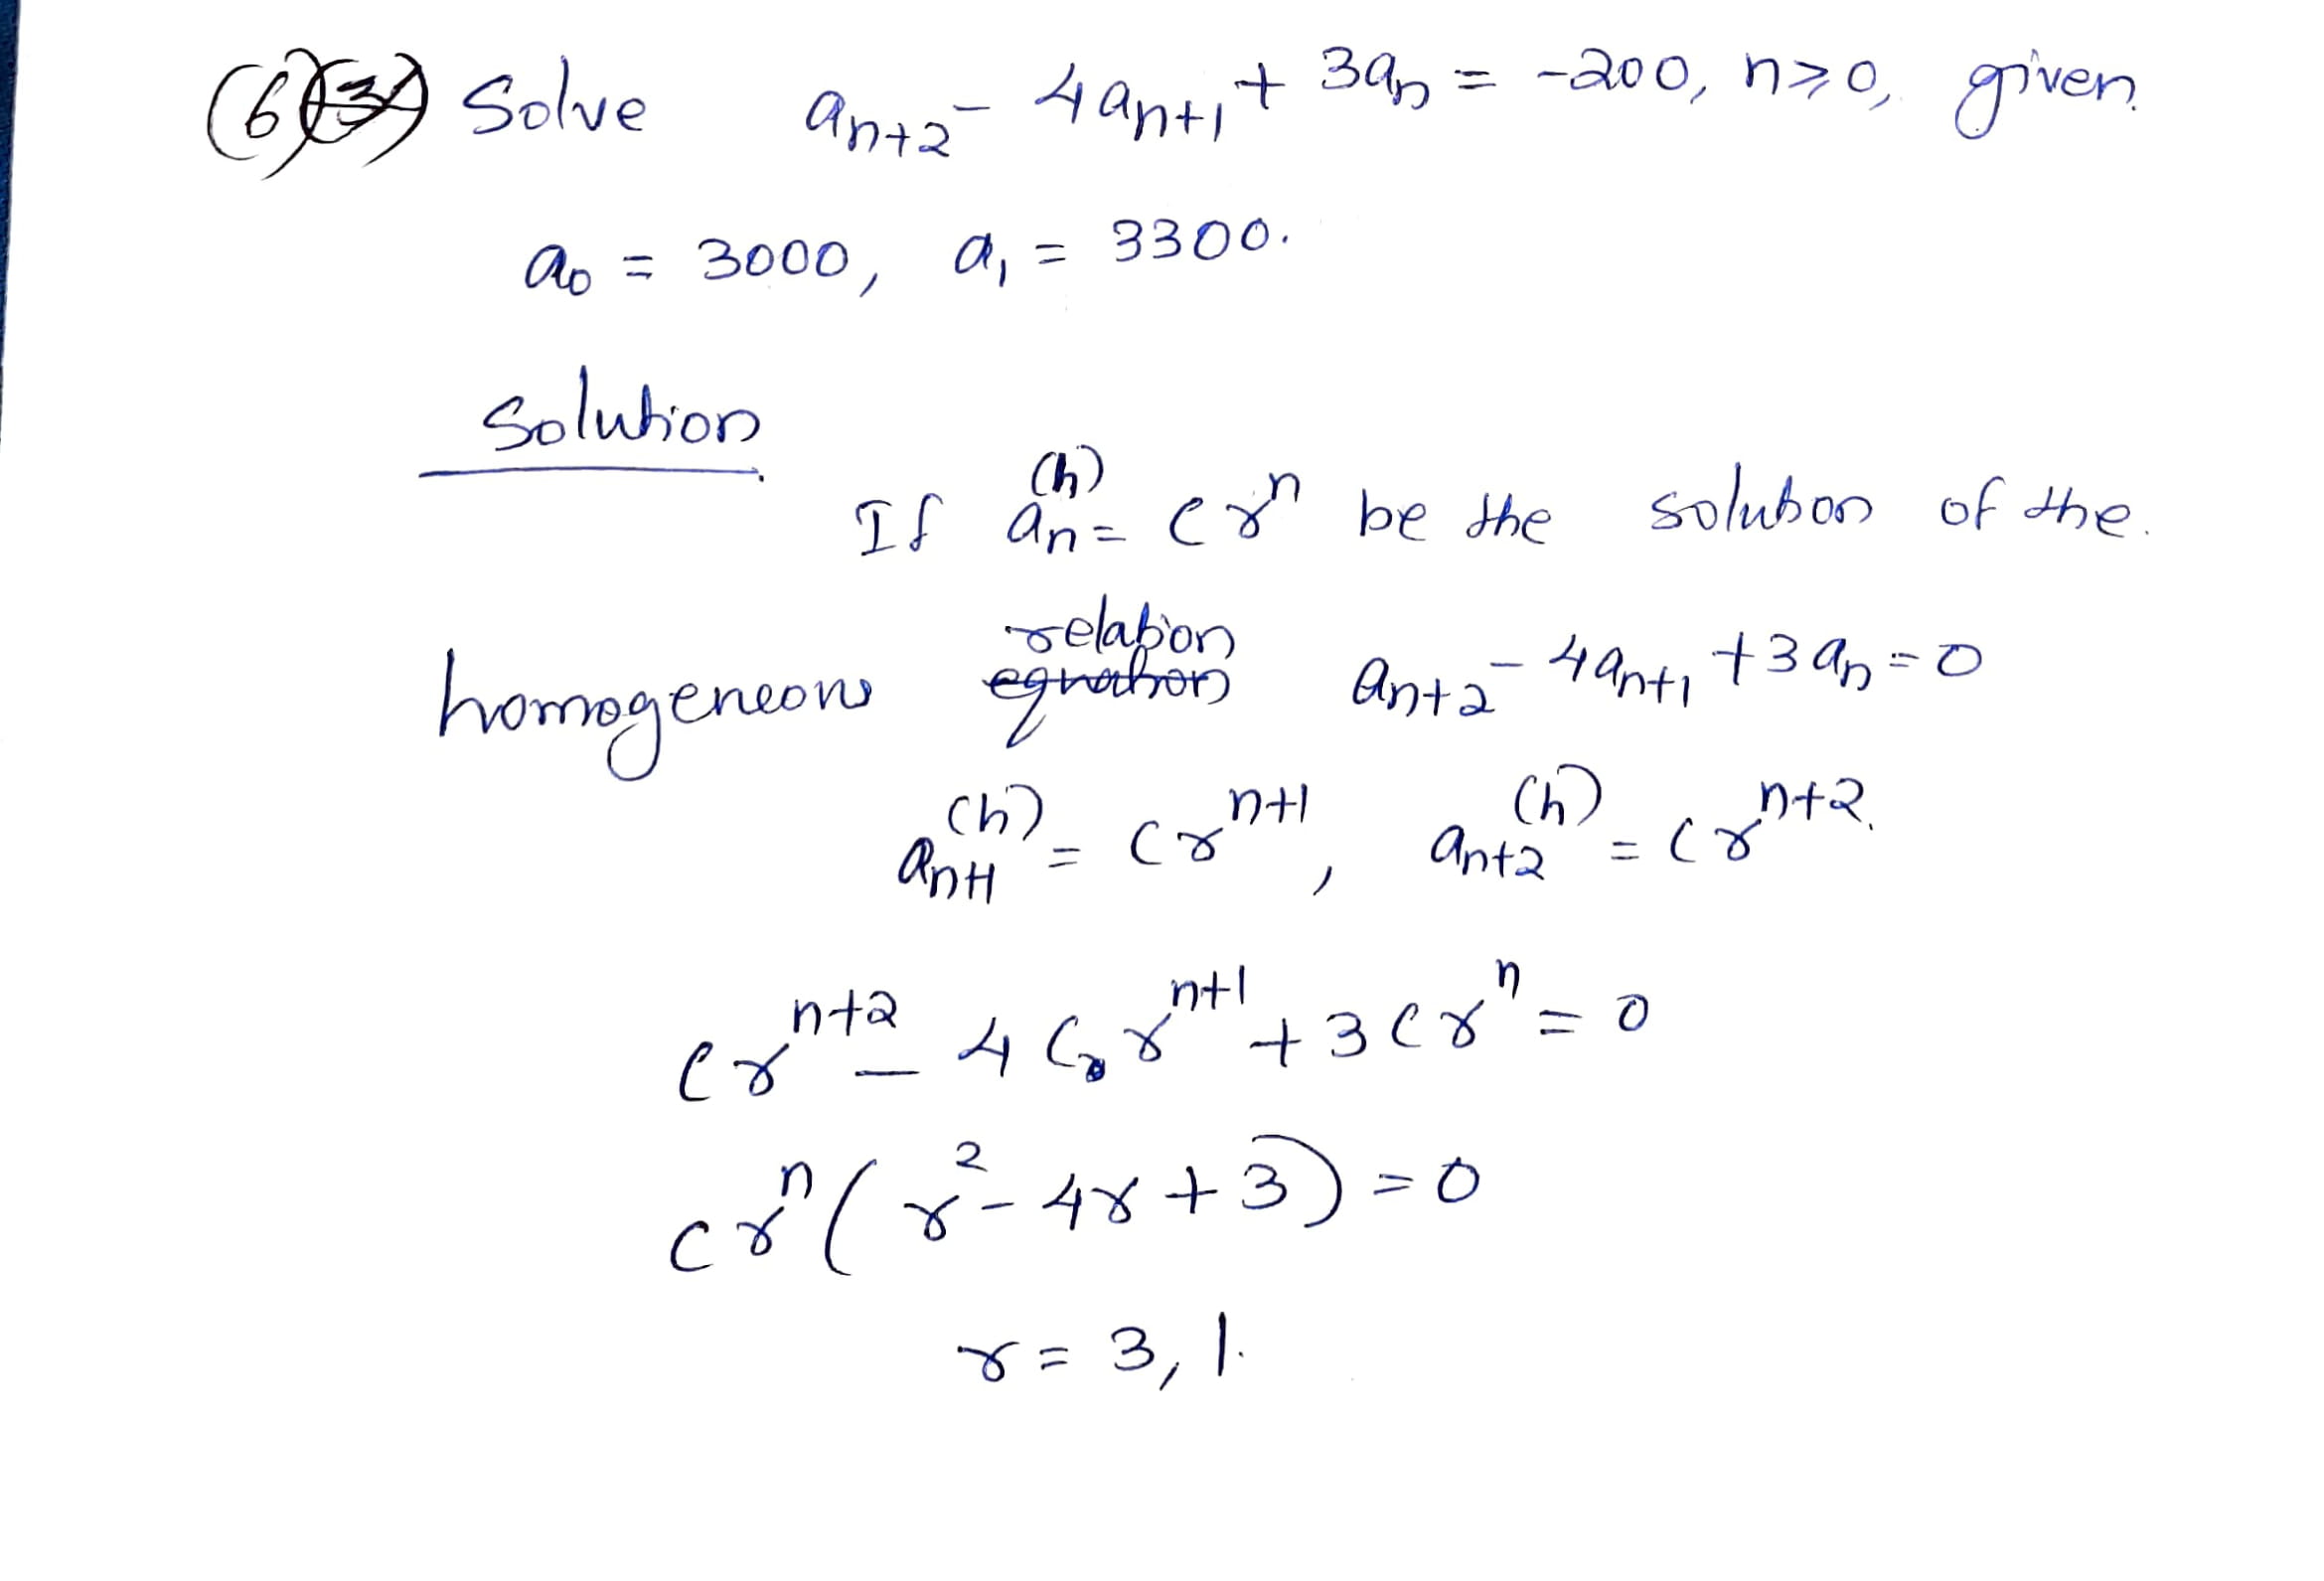 (6) Solve aₙ₊₂ - 4aₙ₊₁ + 3aₙ = -200, n≥0, given
a₀ = 3000, a₁ = 3300.
Solution
If aₙ⁽ʰ⁾ = crⁿ be the solution of the
homogeneous relation equation aₙ₊₂ - 4aₙ₊₁ + 3aₙ = 0
aₙ₊₁⁽ʰ⁾ = crⁿ⁺¹, aₙ₊₂⁽ʰ⁾ = crⁿ⁺².
crⁿ⁺² - 4crⁿ⁺¹ + 3crⁿ = 0
crⁿ(r² - 4r + 3) = 0
r = 3, 1.